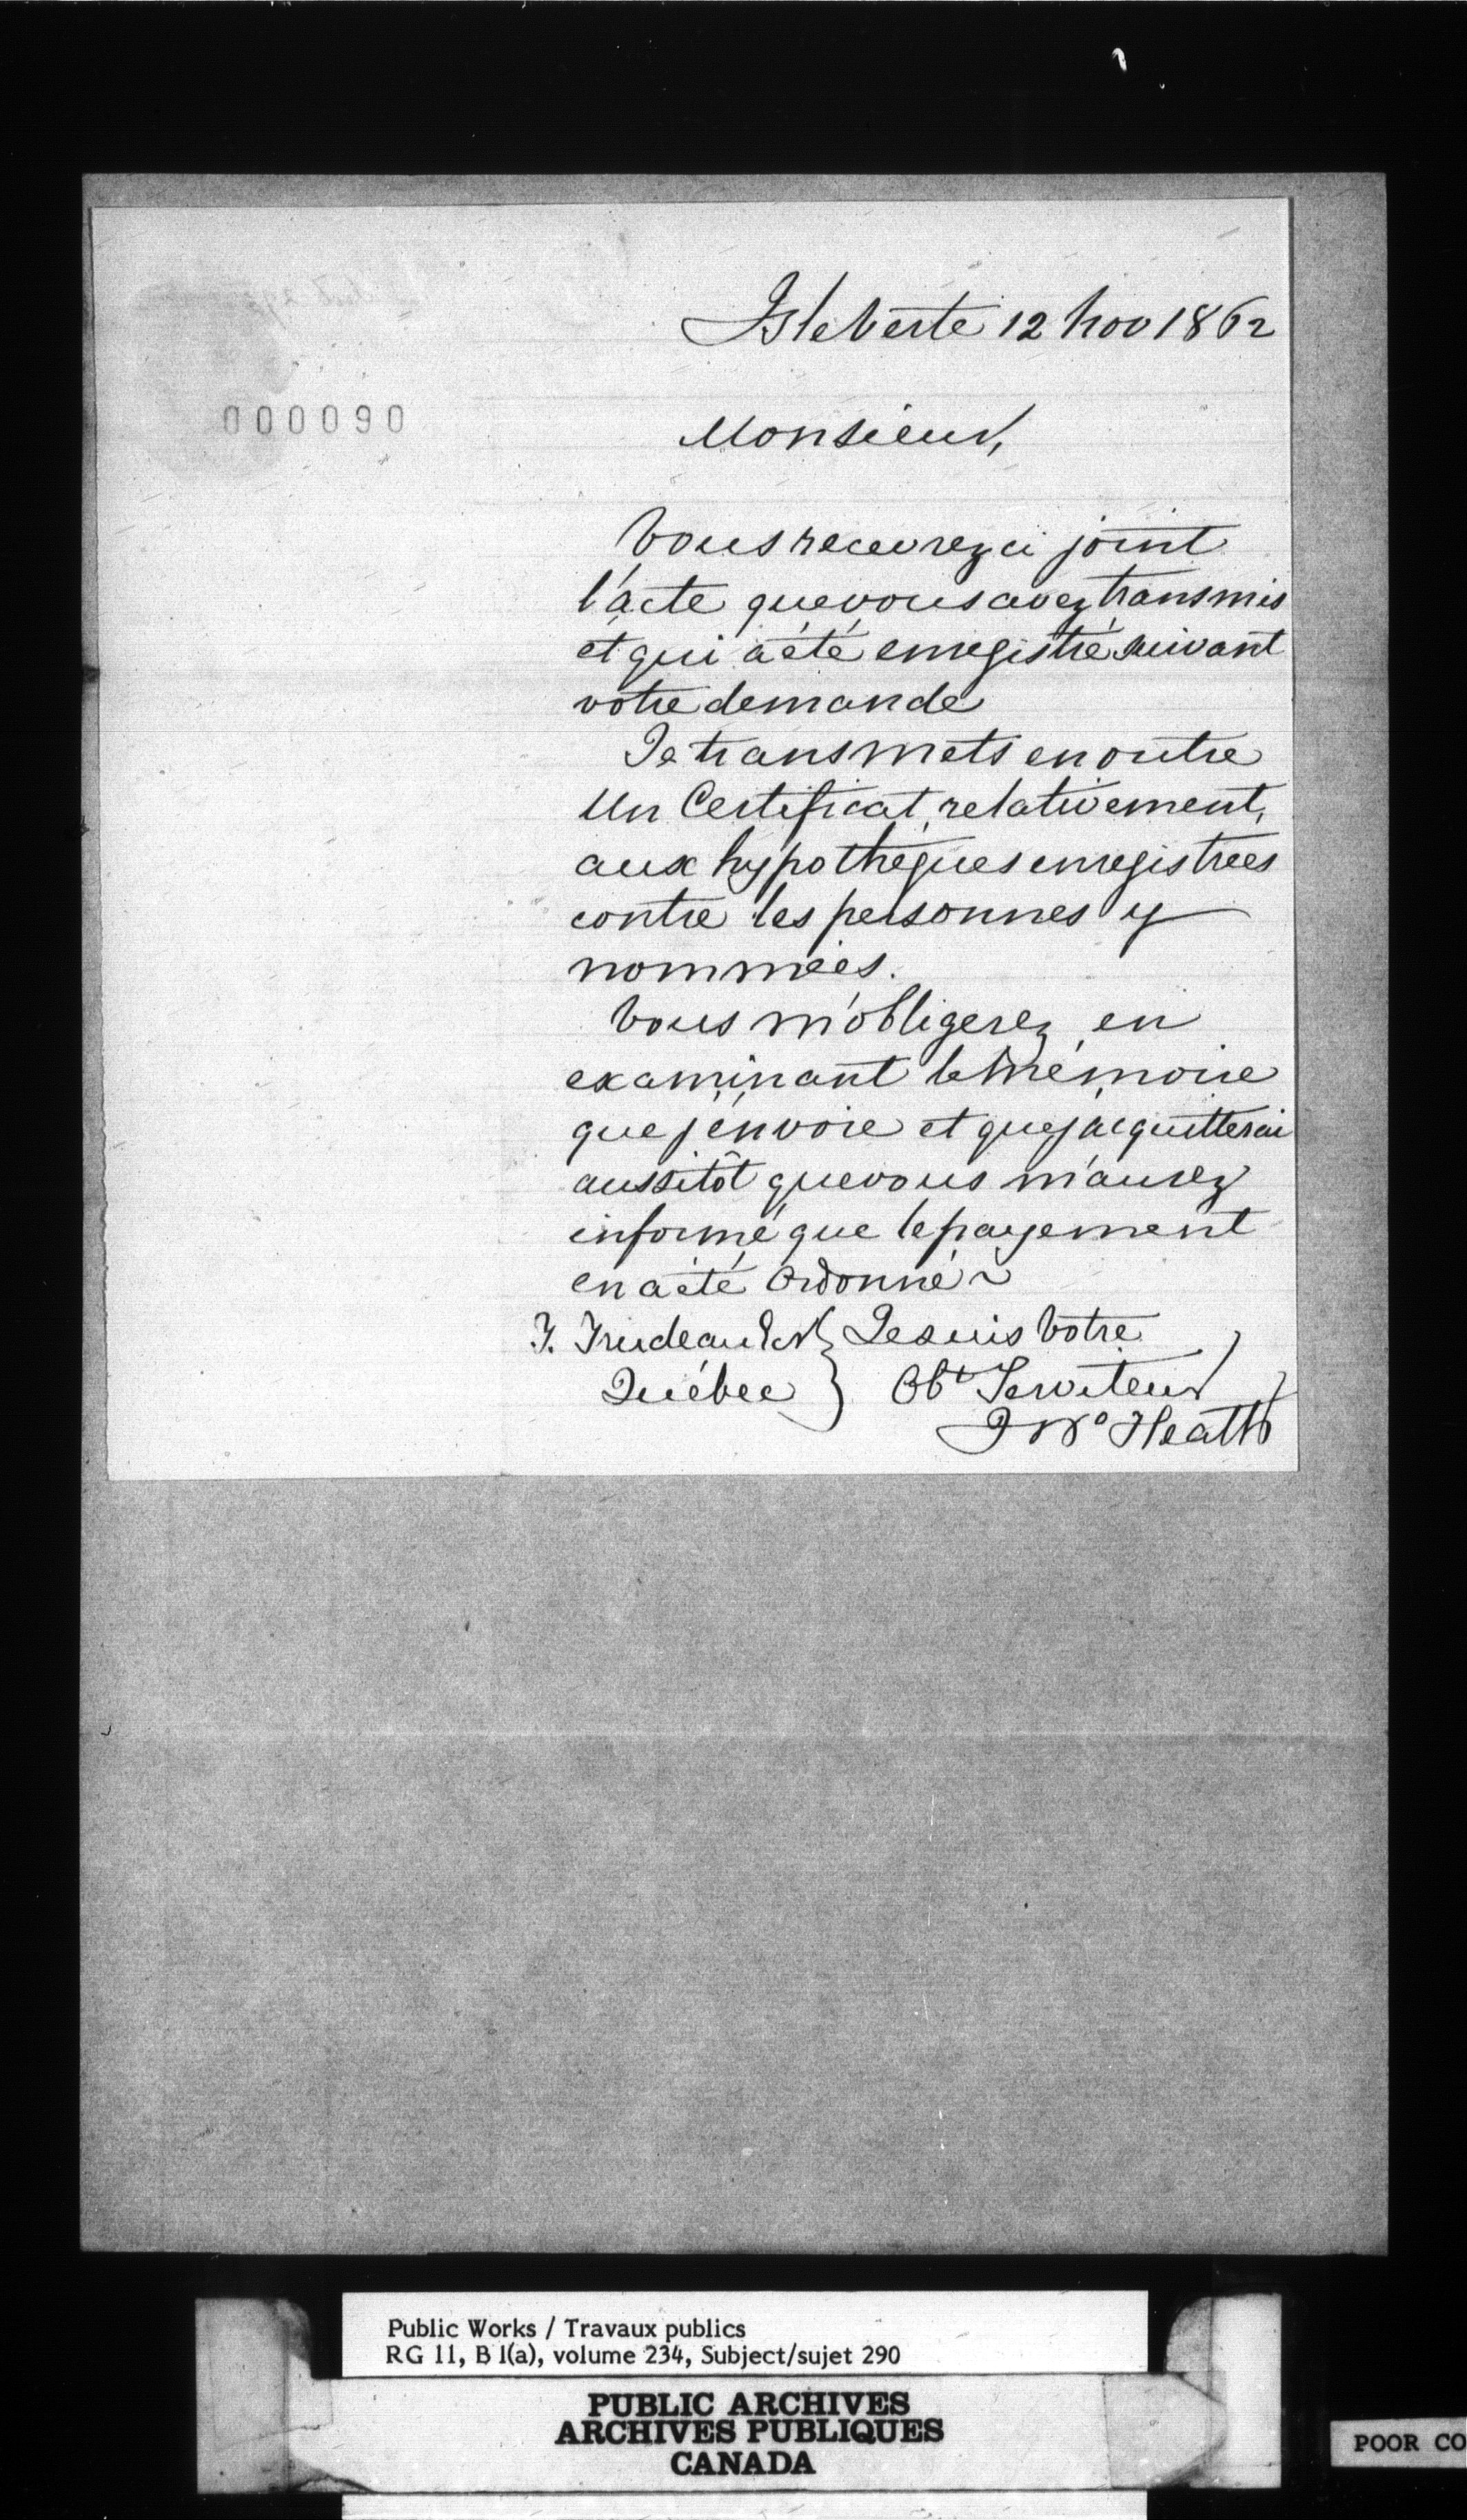 Isle Verte 12 Nov 1862
000090
Monsieur,
Vous recevrez ci joint
l'acte que vous avez transmis
et qui a été enregistré suivant
votre demande
Je transmets en outre
Un Certificat relativement,
aux hypothèques enregistrées
contre les personnes y
nommées.
Vous m'obligerez en
examinant le mémoire
que j'envoie et que j'acquitterai
aussitôt que vous m'aurez
informé que le payement
en a été Ordonné ~
T. Trudeau } Je suis Votre
Québec } Obt Serviteur
Jno Heath
Public Works / Travaux publics
RG 11, B 1(a), volume 234, Subject/sujet 290
PUBLIC ARCHIVES
ARCHIVES PUBLIQUES
CANADA
POOR CO